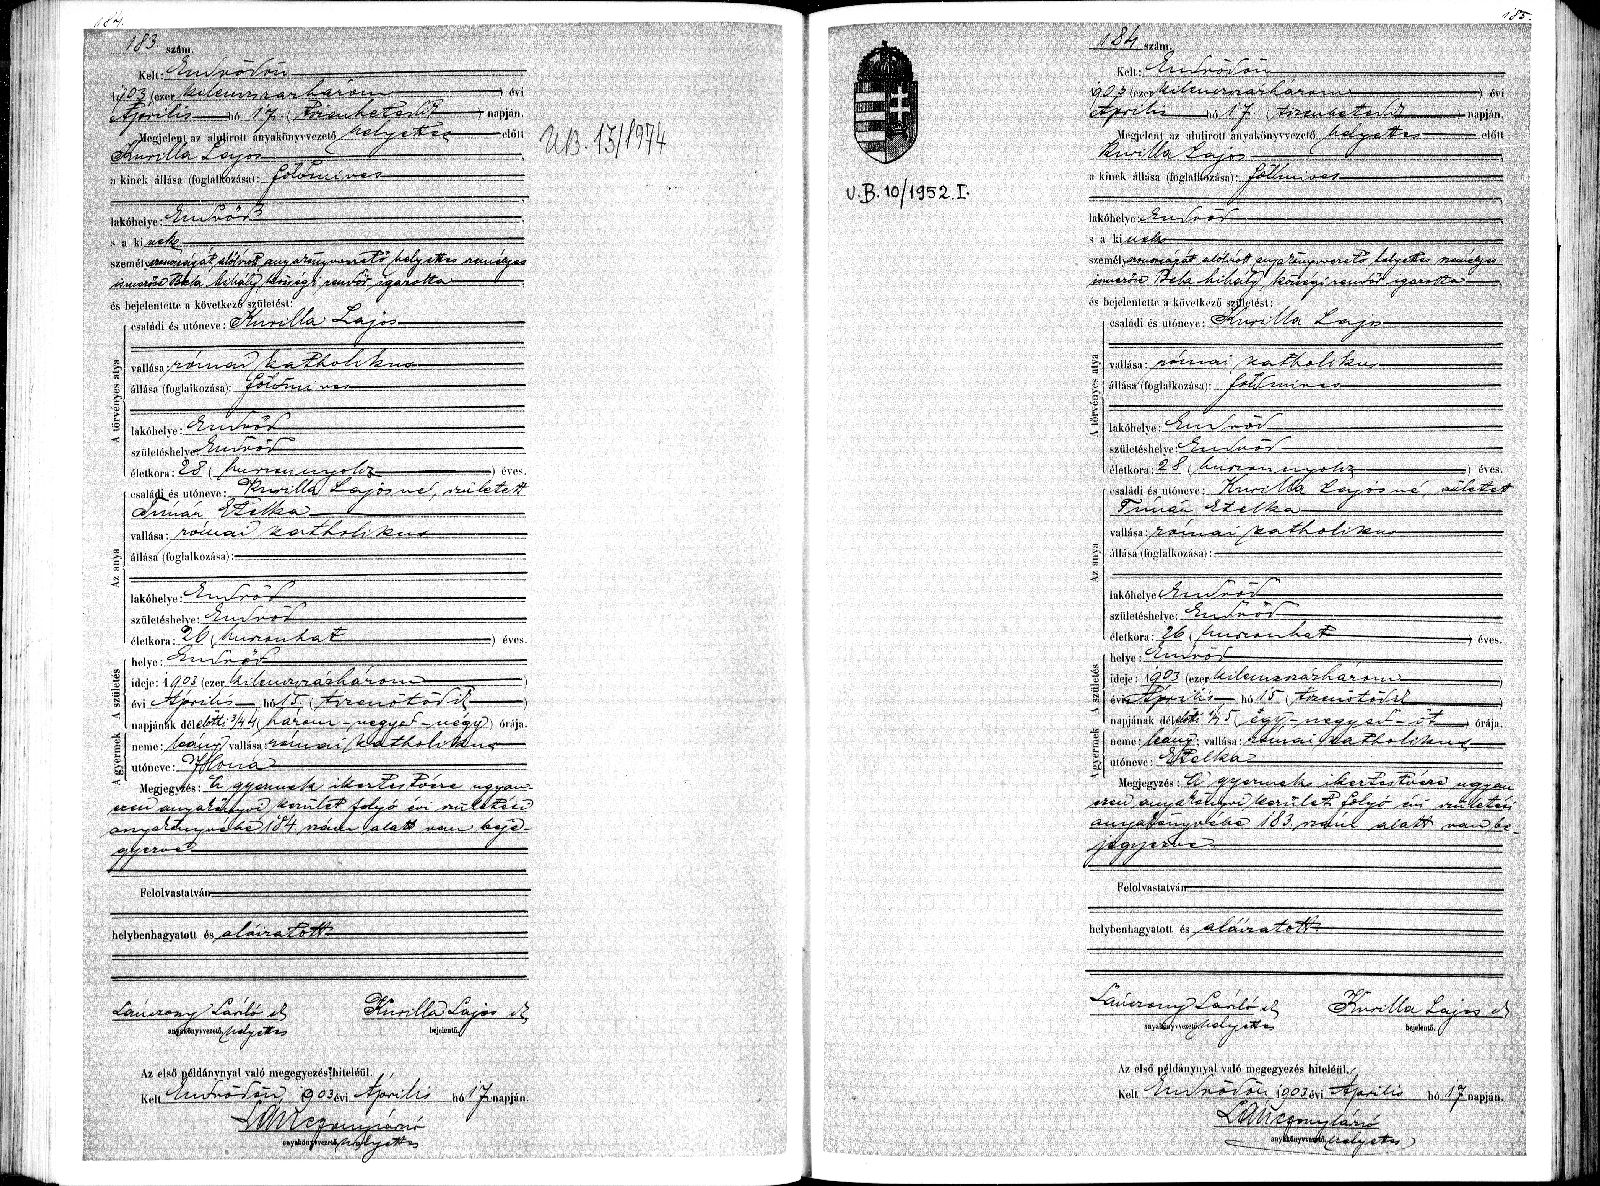 184.
183 szám.
Kelt: Endrődön
1903 (ezer kilenczszázhárom) évi
Április hó 17 (tizenhetedik) napján.
Megjelent az alulirott anyakönyvvezető helyettes előtt
Kurilla Lajos
a kinek állása (foglalkozása): földmives
lakóhelye: Endrőd
s a kinek
személyazonosságát alólirott anyakönyvvezető helyettes személyes
ismerőse Béla Mihály községi rendőr igazolta
és bejelentette a következő születést:
A törvényes atya
családi és utóneve: Kurilla Lajos
vallása: római katholikus
állása (foglalkozása): földmives
lakóhelye: Endrőd
születéshelye: Endrőd
életkora: 28 (huszonnyolcz) éves.
Az anya
családi és utóneve: Kurilla Lajosné, született
Timár Etelka
vallása: római katholikus
állása (foglalkozása):
lakóhelye: Endrőd
születéshelye: Endrőd
életkora: 26 (huszonhat) éves.
A születés
helye: Endrőd
ideje: 1903 (ezer kilenczszázhárom)
évi Április hó 15 (tizenötödik)
napjának délelőtti 3/4 4 (három-negyed-négy) órája.
A gyermek
neme: leány; vallása: római katholikus
utóneve: Ilona
Megjegyzés: A gyermek ikertestvére ugyan-
ezen anyakönyvi kerület folyó évi születési
anyakönyvébe 184. szám alatt van beje-
gyezve
Felolvastatván
helybenhagyatott és aláiratott
Lánczony László sk Kurilla Lajos sk
anyakönyvvezető helyettes bejelentő.
Az első példánynyal való megegyezés hiteléül.
Kelt Endrődön, 1903 évi Április hó 17 napján.
anyakönyvvezető helyettes
U.B. 15/1974
185.
U.B. 10/1952. I.
184 szám.
Kelt: Endrődön
1903 (ezer kilenczszázhárom) évi
Április hó 17 (tizenhetedik) napján.
Megjelent az alulirott anyakönyvvezető helyettes előtt
Kurilla Lajos
a kinek állása (foglalkozása): földmives
lakóhelye: Endrőd
s a kinek
személyazonosságát alólirott anyakönyvvezető helyettes személyes
ismerőse Béla Mihály községi rendőr igazolta
és bejelentette a következő születést:
A törvényes atya
családi és utóneve: Kurilla Lajos
vallása: római katholikus
állása (foglalkozása): földmives
lakóhelye: Endrőd
születéshelye: Endrőd
életkora: 28 (huszonnyolcz) éves.
Az anya
családi és utóneve: Kurilla Lajosné, született
Timár Etelka
vallása: római katholikus
állása (foglalkozása):
lakóhelye: Endrőd
születéshelye: Endrőd
életkora: 26 (huszonhat) éves.
A születés
helye: Endrőd
ideje: 1903 (ezer kilenczszázhárom)
évi Április hó 15 (tizenötödik)
napjának délelőtti 1/4 5 (egy-negyed-öt) órája.
A gyermek
neme: leány; vallása: római katholikus
utóneve: Etelka
Megjegyzés: A gyermek ikertestvére ugyan
ezen anyakönyvi kerület folyó évi születési
anyakönyvébe 183. szám alatt van be-
jegyezve
Felolvastatván
helybenhagyatott és aláiratott
Lánczony László sk Kurilla Lajos sk
anyakönyvvezető helyettes bejelentő.
Az első példánynyal való megegyezés hiteléül.
Kelt Endrődön 1903 évi Április hó 17 napján.
anyakönyvvezető helyettes